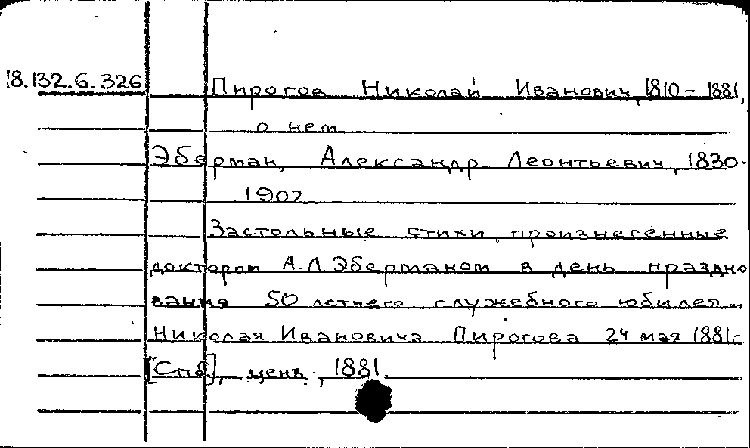 18.132.6.326 Пирогов Николай Иванович, 1810-1881,
о нем
Эберман, Александр Леонтьевич, 1830-
1902
Застольные стихи, произнесенные
доктором А.Л. Эберманом в день праздно
вания 50 летнего служебного юбилея
Николая Ивановича Пирогова 24 мая 1881г
[Спб], ценз, 1881.